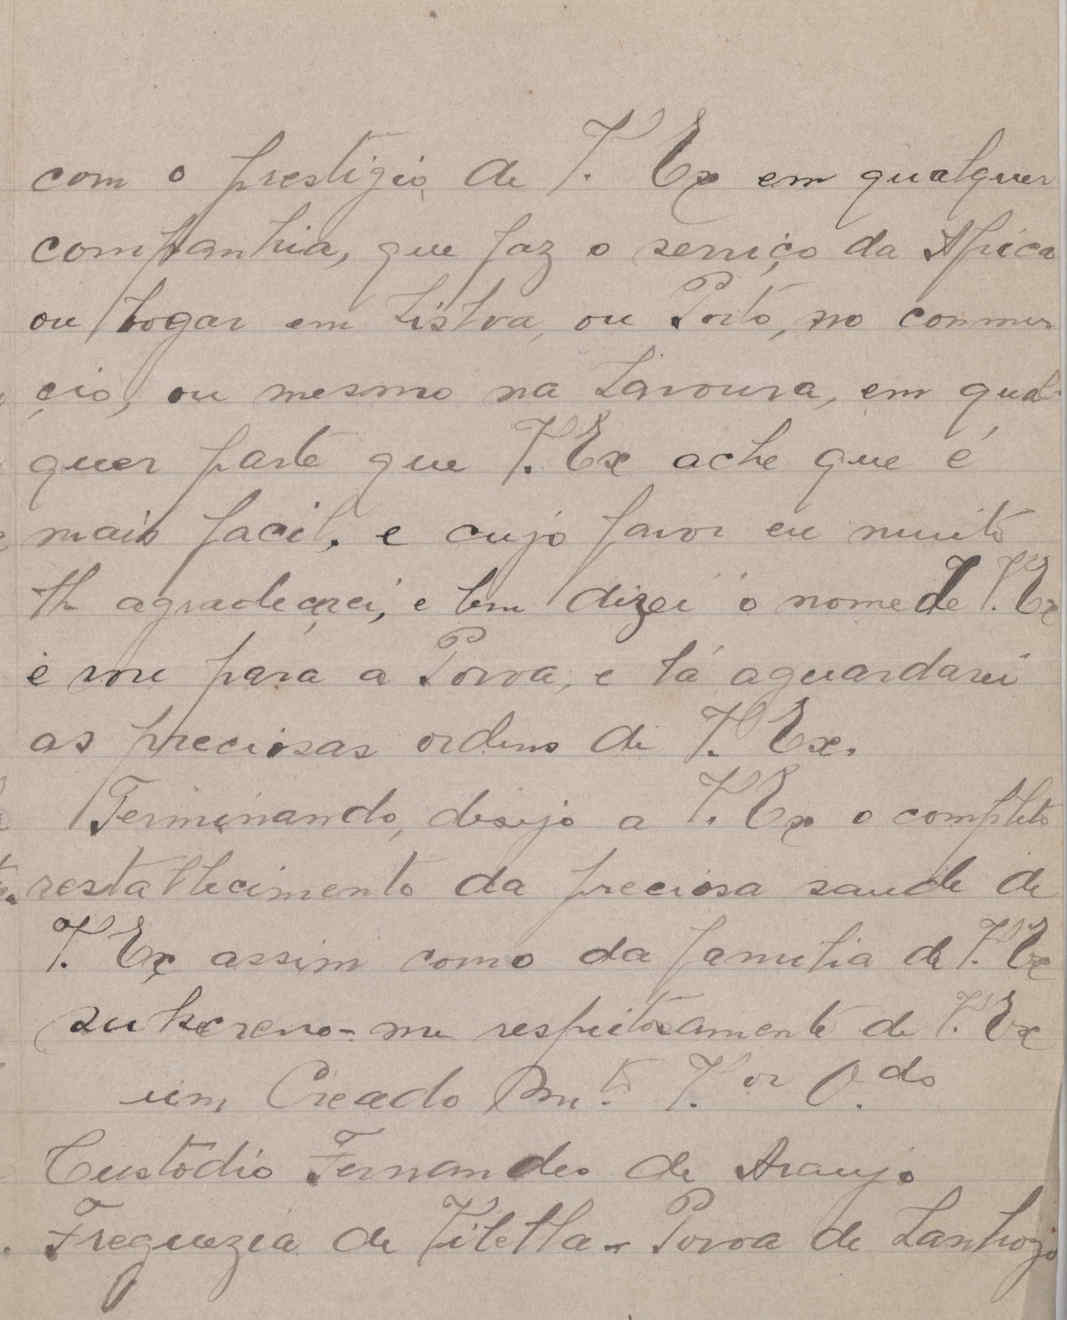 com o prestigio de V. Ex em qualquer
companhia, que faz o serviço da Africa
ou logar em Lisboa, ou Porto, no commer
cio, ou mesmo na Lavoura, em qual
quer parte que V. Ex ache que é
mais facil, e cujo favor eu muito
lh agradecerei, e bem dizei o nome de V. Ex
e vou para a Povoa, e lá aguardarei
as preciosas ordens de V. Ex.
Terminando, desejo a V. Ex o completo
restabelecimento da preciosa saude de
V. Ex assim como da familia de V. Ex
subscrevo-me respeitosamente de V. Ex
um Creado Mu.to V.or O.do
Custodio Fernandes de Araujo
Freguezia de Vilella - Povoa de Lanhozo